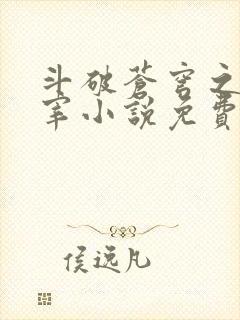 斗破蒼穹之
宰小說免費
侯远凡